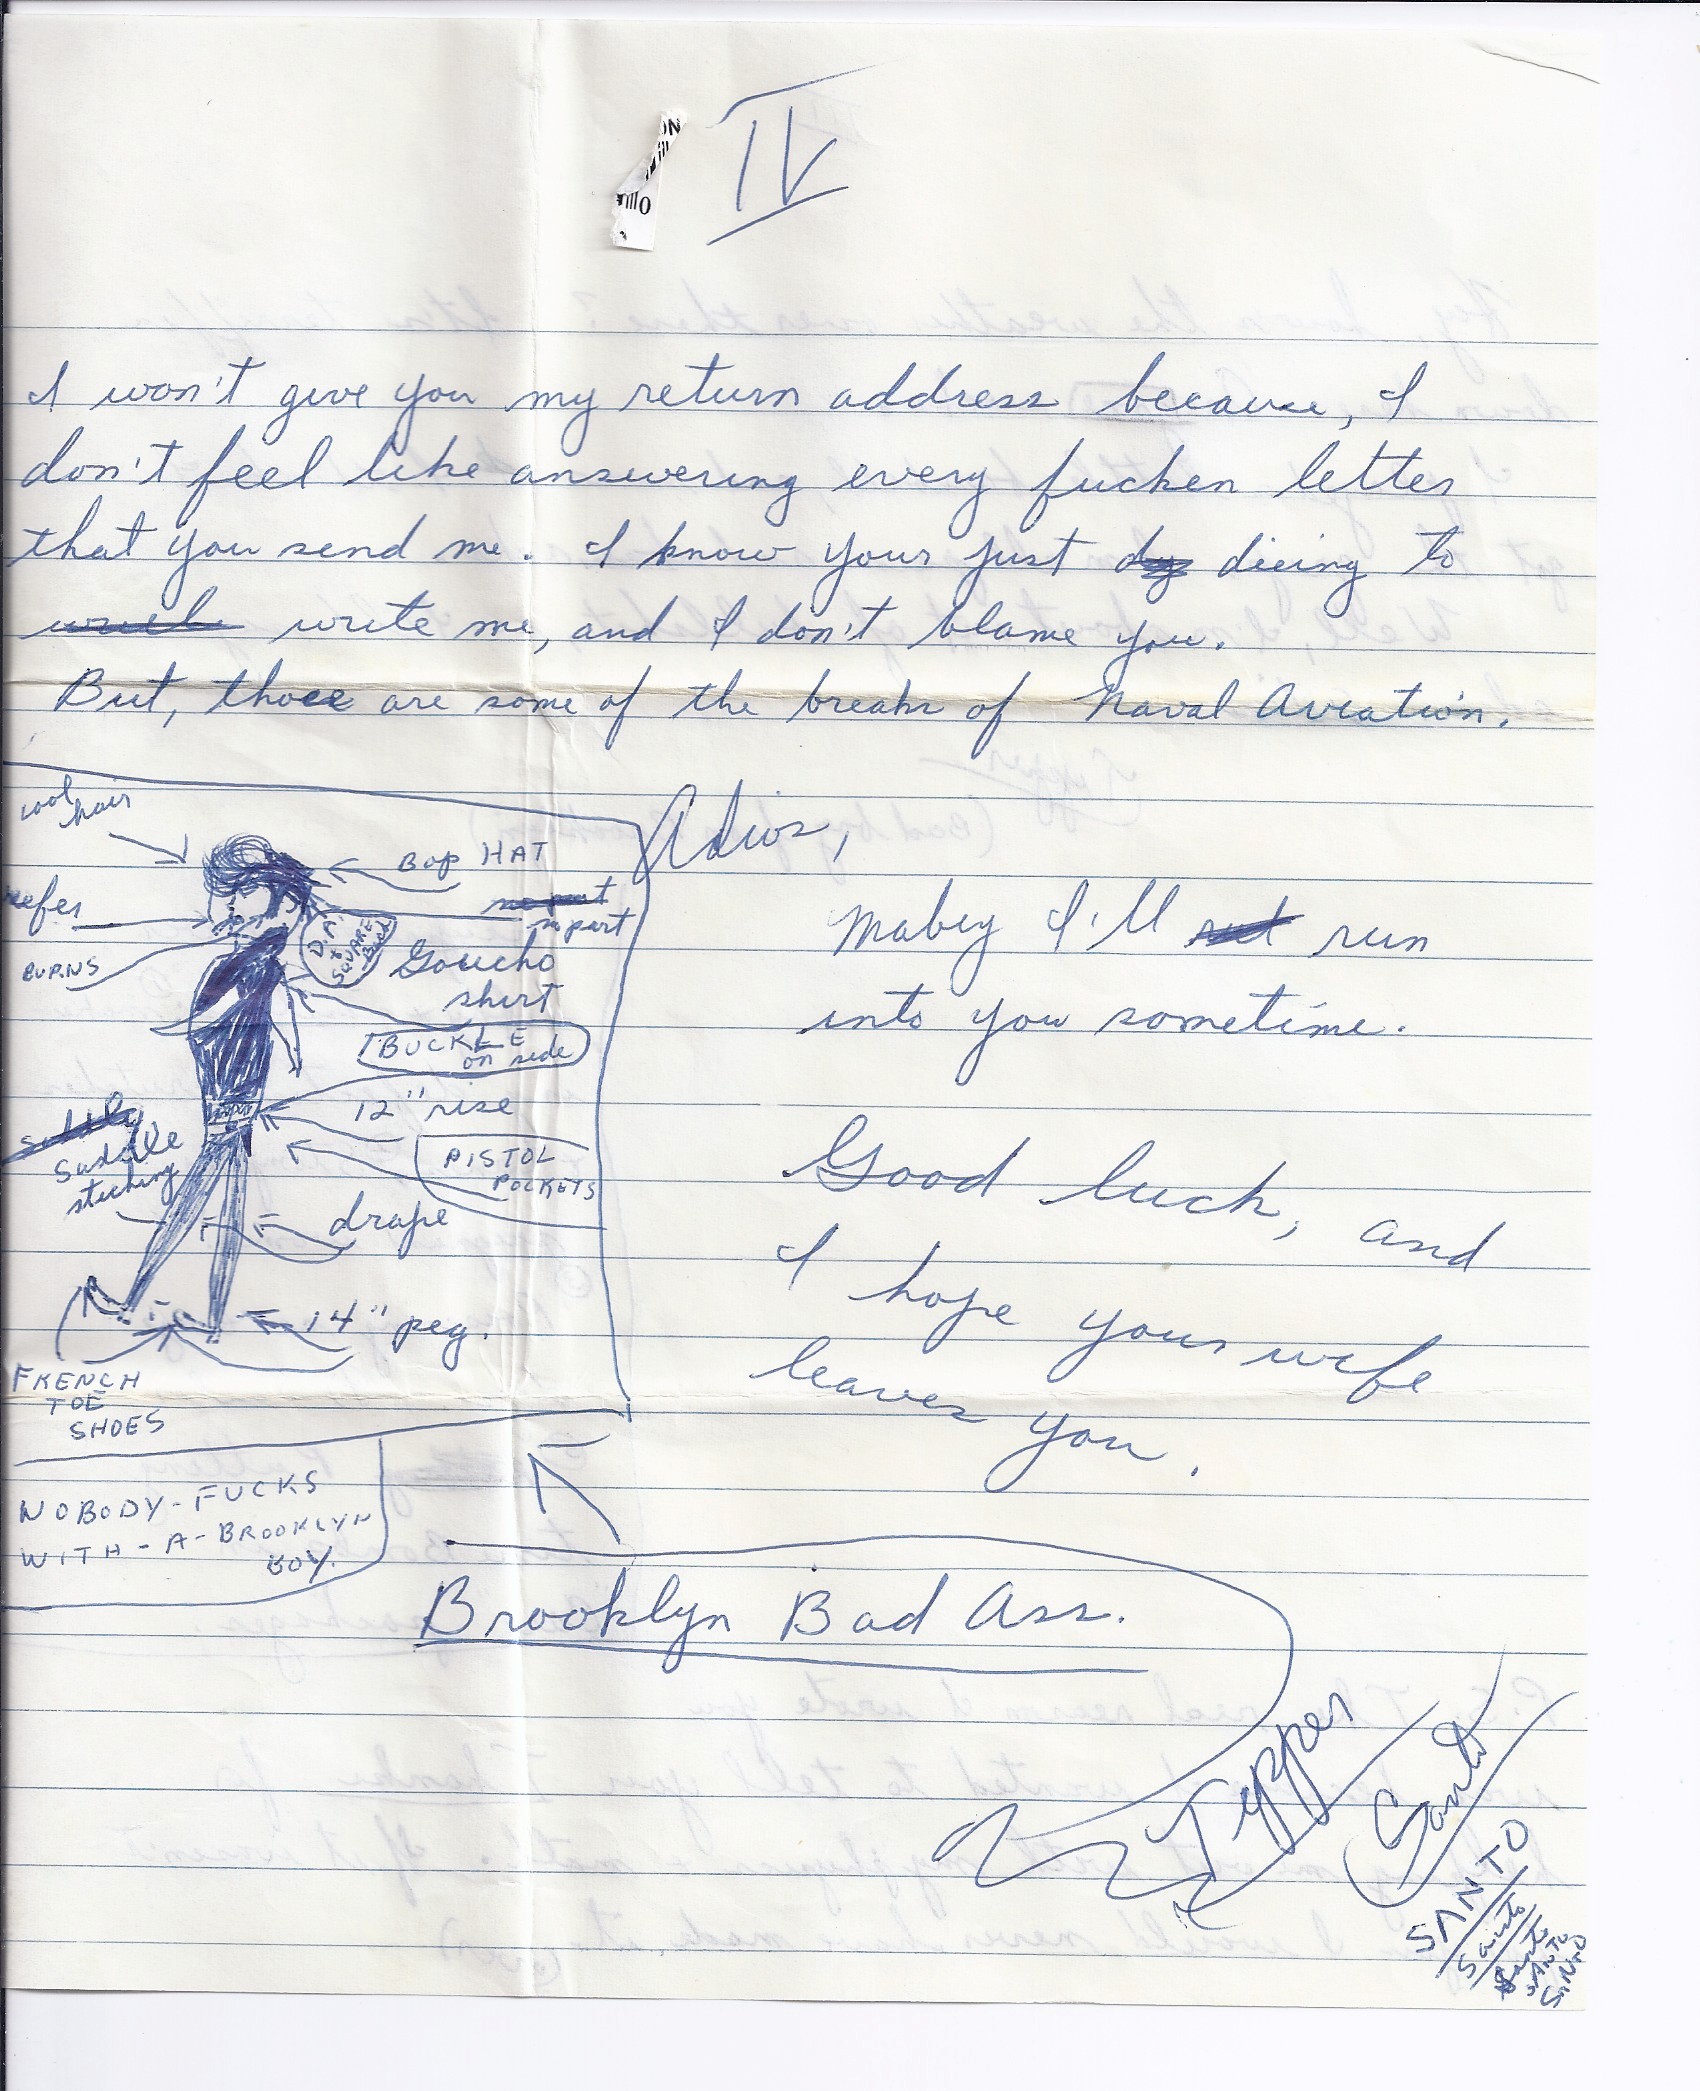 IV
I won't give you my return address because, I
don't feel like answering every fucken letter
that you send me. I know your just dy dieing to
write me, and I don't blame you.
But, those are some of the breaks of Naval Aviation.
cool hair
BOP HAT
no part
no part
reefer
D.A. & SQUARE Back
BURNS
Goucho
shirt
BUCKLE
on side
12" rise
PISTOL
POCKETS
Saddle
stiching
drape
14" peg.
FRENCH
TOE
SHOES
NOBODY-FUCKS
WITH-A-BROOKLYN
BOY.
Adios,
Mabey I'll run
into you sometime.
Good luck, and
I hope your wife
leaves you.
Brooklyn Bad Ass.
Santo
SANTO
Santo
Santo
SANTO
SANTO